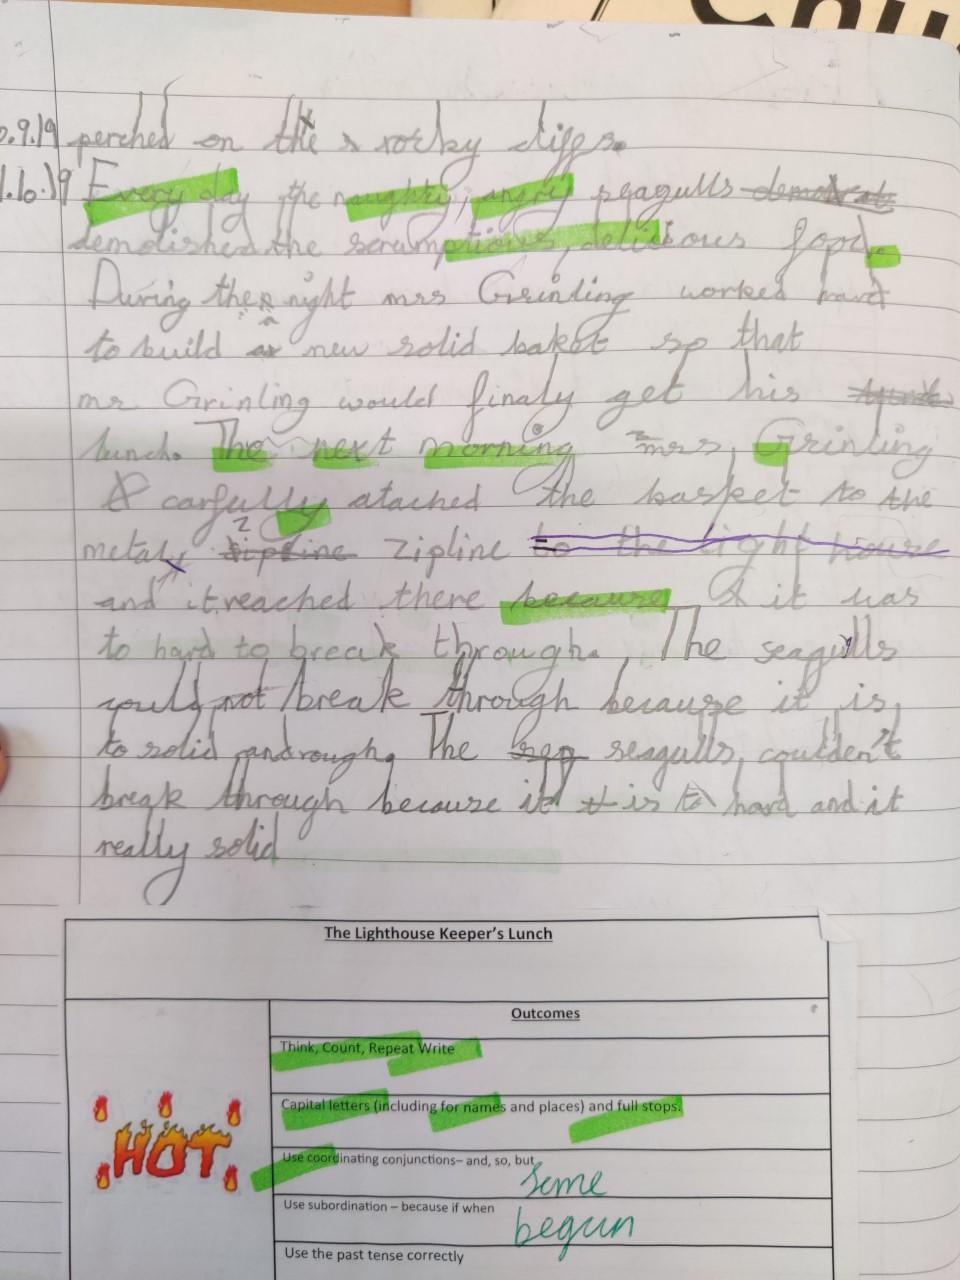 perched on the rocky cliffs.
1.10.19 Every day the naughty, angry seagulls
demolished the scrumptious delicious food.
During the night mrs Grinling worked hard
to build a new solid basket so that
mr Grinling would finaly get his
lunch. The next morning mrs Grinling
carfully atached the basket to the
metal zipline zipline to the light house
and it reached there because it was
to hard to break through. The seagulls
could not break through because it is
to solid and rough. The seagulls coulden't
break through because it is to hard and it
really solid
The Lighthouse Keeper's Lunch
Outcomes
Think, Count, Repeat Write
Capital letters (including for names and places) and full stops.
HOT
Use coordinating conjunctions– and, so, but
some
Use subordination – because if when
begun
Use the past tense correctly